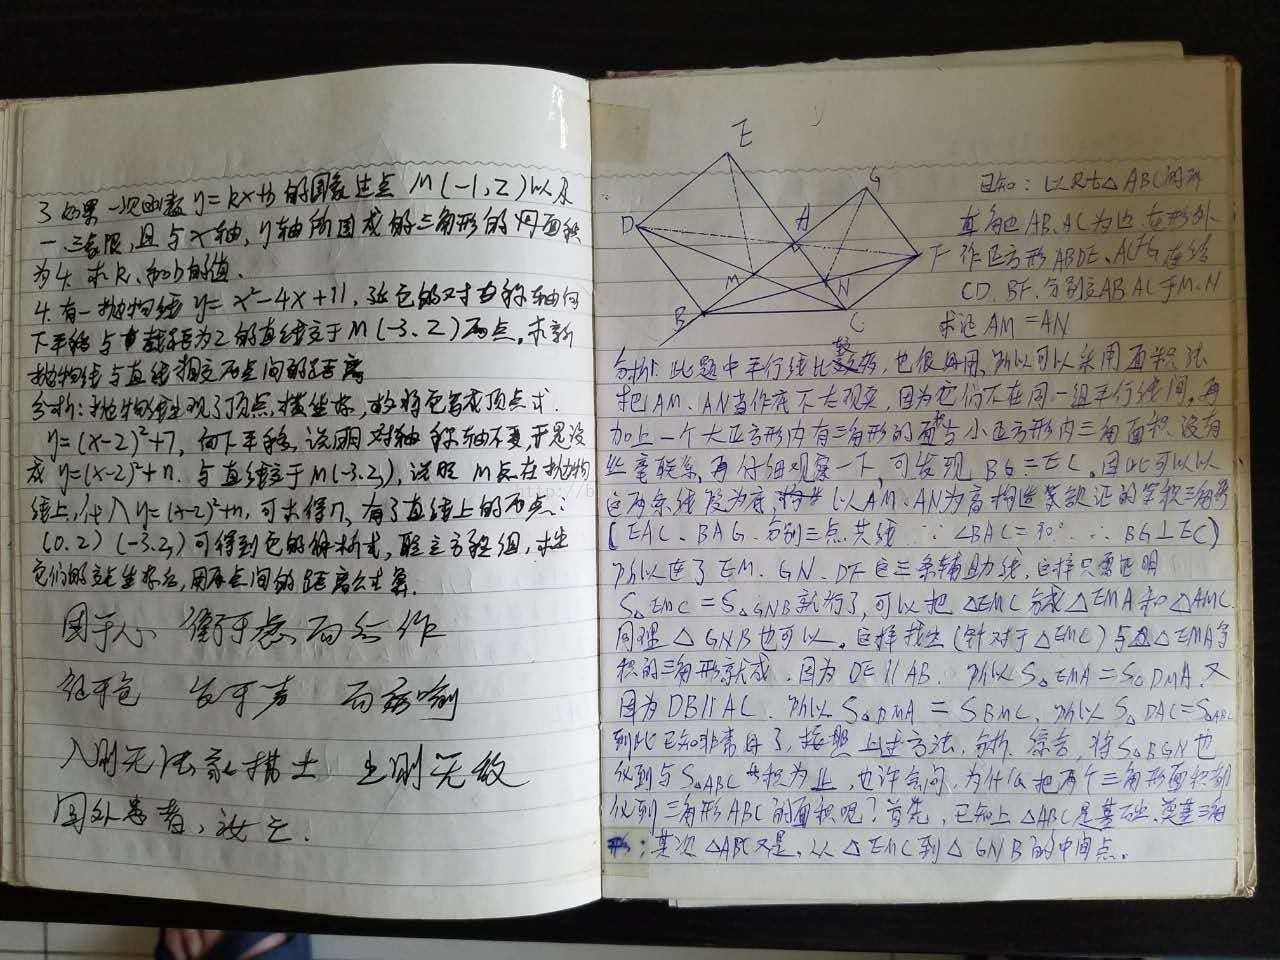 3 如果一次函数 y=kx+b 的图象过点 M(-1,2)以及
一、三象限,且与x轴,y轴所围成的三角形的面积
为4.求k、和b的值.
4.有一抛物线 y=x²-4x+11,沿它的对称轴向
下平移与截距为2的直线交于M(-3.2)两点.求新
抛物线与直线相交两点间的距离
分析:抛物线出现了顶点,横坐标,故将它写成顶点式.
y=(x-2)²+7,向下平移,说明对称轴不变,于是设
成 y=(x-2)²+n.与直线交于M(-3.2),说明M点在抛物
线上,代入 y=(x-2)²+n,可求得n,有了直线上的两点:
(0.2)(-3.2)可得到它的解析式,联立方程组,求出
它们的交点坐标后,用两点间的距离公式算.
困于心 衡于虑 而后作
征于色 发于声 而后喻
入则无法家拂士 出则无敌
国外患者,
E
G
D
A
F
M
N
B
C
已知:以Rt△ABC的两
直角边AB、AC为边 在形外
作正方形ABDE、ACFG 连结
CD、BF.分别交AB AC于M、N
求证 AM=AN
分析:此题中平行线比较多,也很好用,所以可以采用面积法
把AM、AN当作底不太现实,因为它们不在同一组平行线间,再
加上一个大正方形内有三角形的面积与小正方形内三角面积没有
必要联系,再仔细观察一下,可发现 BG=EC,因此可以以
这两条线段为底,以AM、AN为高构造等欲证的等积三角形
(EAC、BAG 分别三点共线 ∵∠BAC=90° ∴BG⊥EC)
所以连了EM、GN、DF这三条辅助线,这样只需证明
S△EMC=S△GNB就行了,可以把△EMC分成△EMA和△AMC.
同理△GNB也可以.这样找出(针对于△EMC)与△EMA等
积的三角形就成.因为DE∥AB.所以S△EMA=S△DMA.又
因为DB∥AC.所以S△DMA=SBMC,所以S△DAC=S△ABC
到此已知非常好了,按照上述方法,分析.综合,将S△BGN也
化到与S△ABC等积为止,也许会问,为什么把两个三角形面积都
化到三角形ABC的面积呢?首先,已知上△ABC是基础、奠基三角
形;其次△ABC又是,从△EMC到△GNB的中间点.